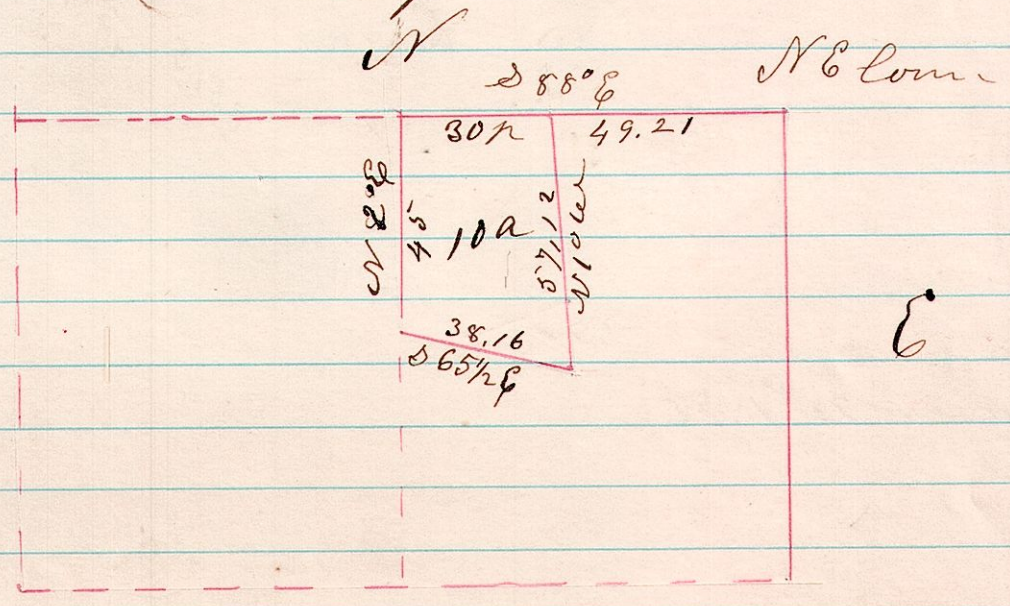 N
S 88° E
N E Corn.
30 p
49.21
N 2° E
45
10 a
57,12
N 10 W
38,16
S 65 1/2 E
E